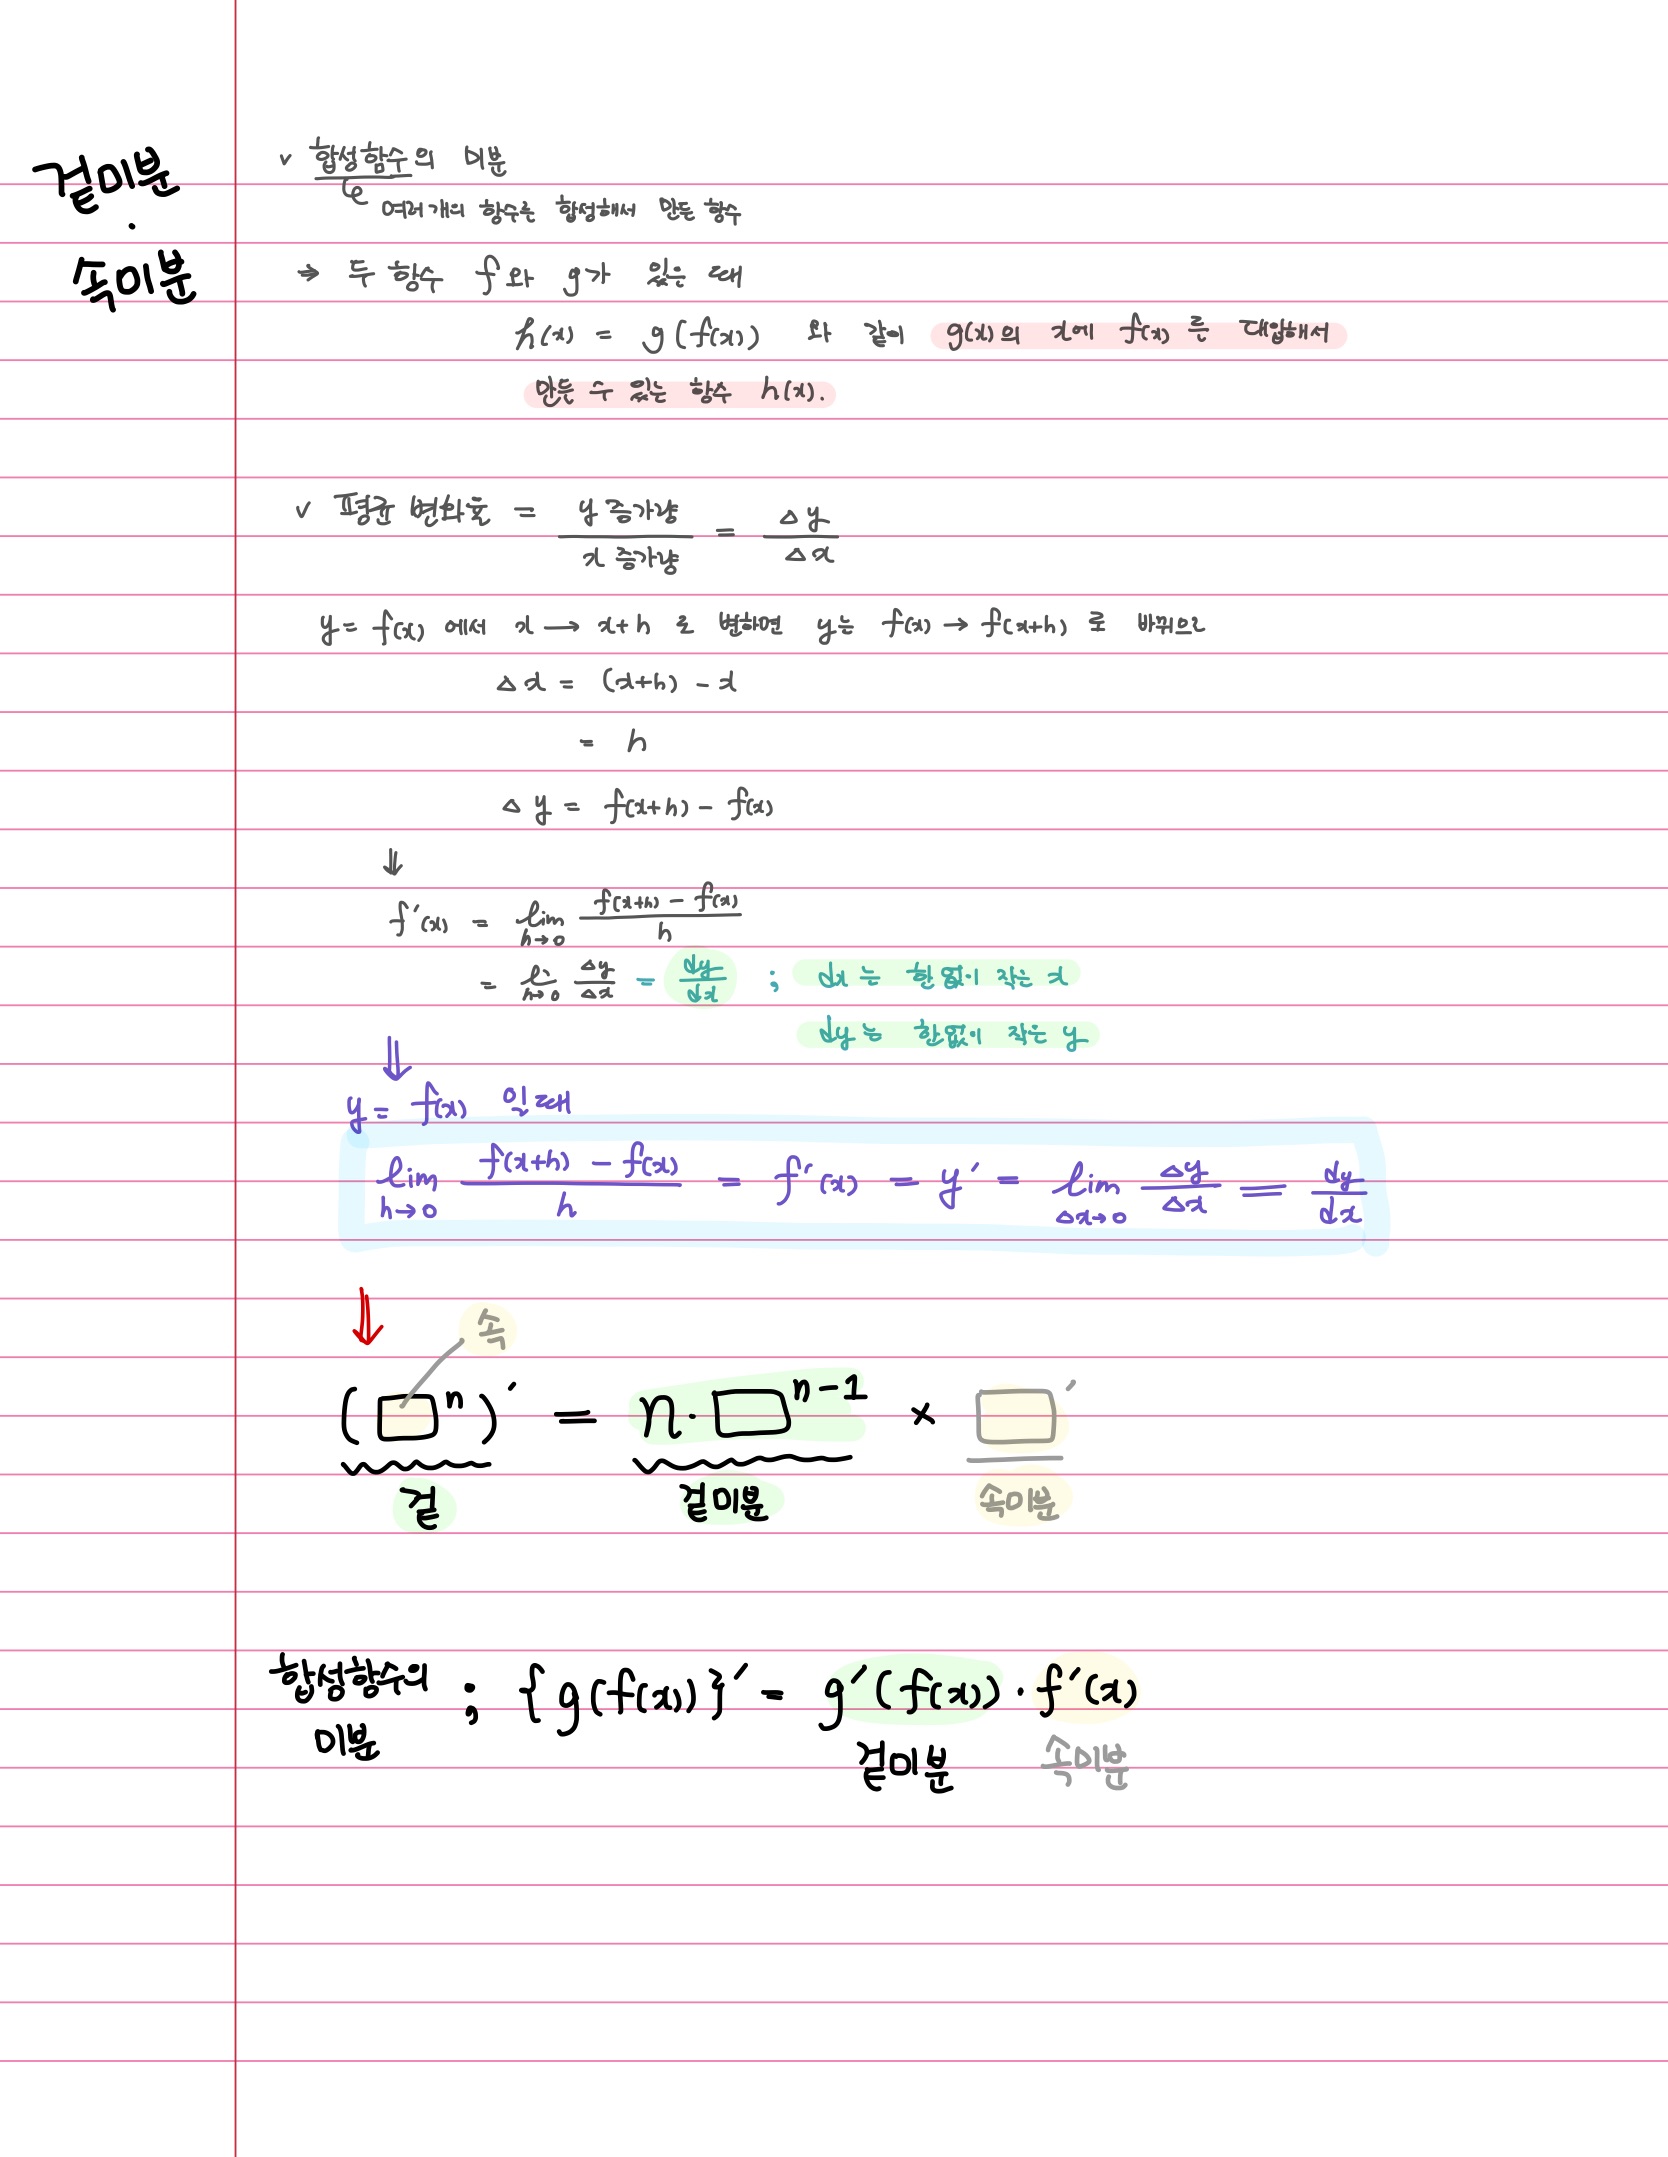 겉미분
·
속미분
∨ 합성함수의 미분
여러개의 함수를 합성해서 만든 함수
→ 두 함수 f와 g가 있을 때
h(x) = g(f(x)) 와 같이 g(x)의 x에 f(x)를 대입해서
만들 수 있는 함수 h(x).
∨ 평균변화율 = y증가량 / x증가량 = △y / △x
y = f(x) 에서 x → x+h 로 변하면 y는 f(x) → f(x+h) 로 바뀌으로
△x = (x+h) - x
= h
△y = f(x+h) - f(x)
⇓
f'(x) = lim h→0 f(x+h) - f(x) / h
= lim h→0 △y / △x = dy / dx ; dx는 한없이 작은 x
dy는 한없이 작은 y
⇓
y = f(x) 일때
lim h→0 f(x+h) - f(x) / h = f'(x) = y' = lim △x→0 △y / △x = dy / dx
⇓ 속
(□ⁿ)' = n·□ⁿ⁻¹ × □'
겉 겉미분 속미분
합성함수의 ; {g(f(x))}' = g'(f(x))·f'(x)
미분 겉미분 속미분